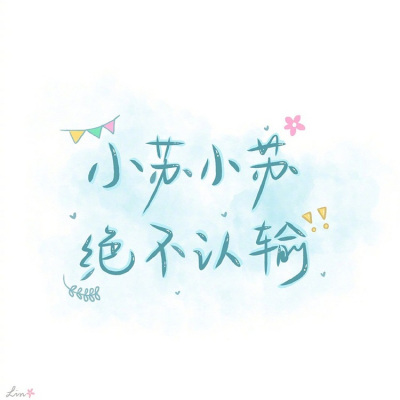 小苏小苏
绝不认输!!
Lin